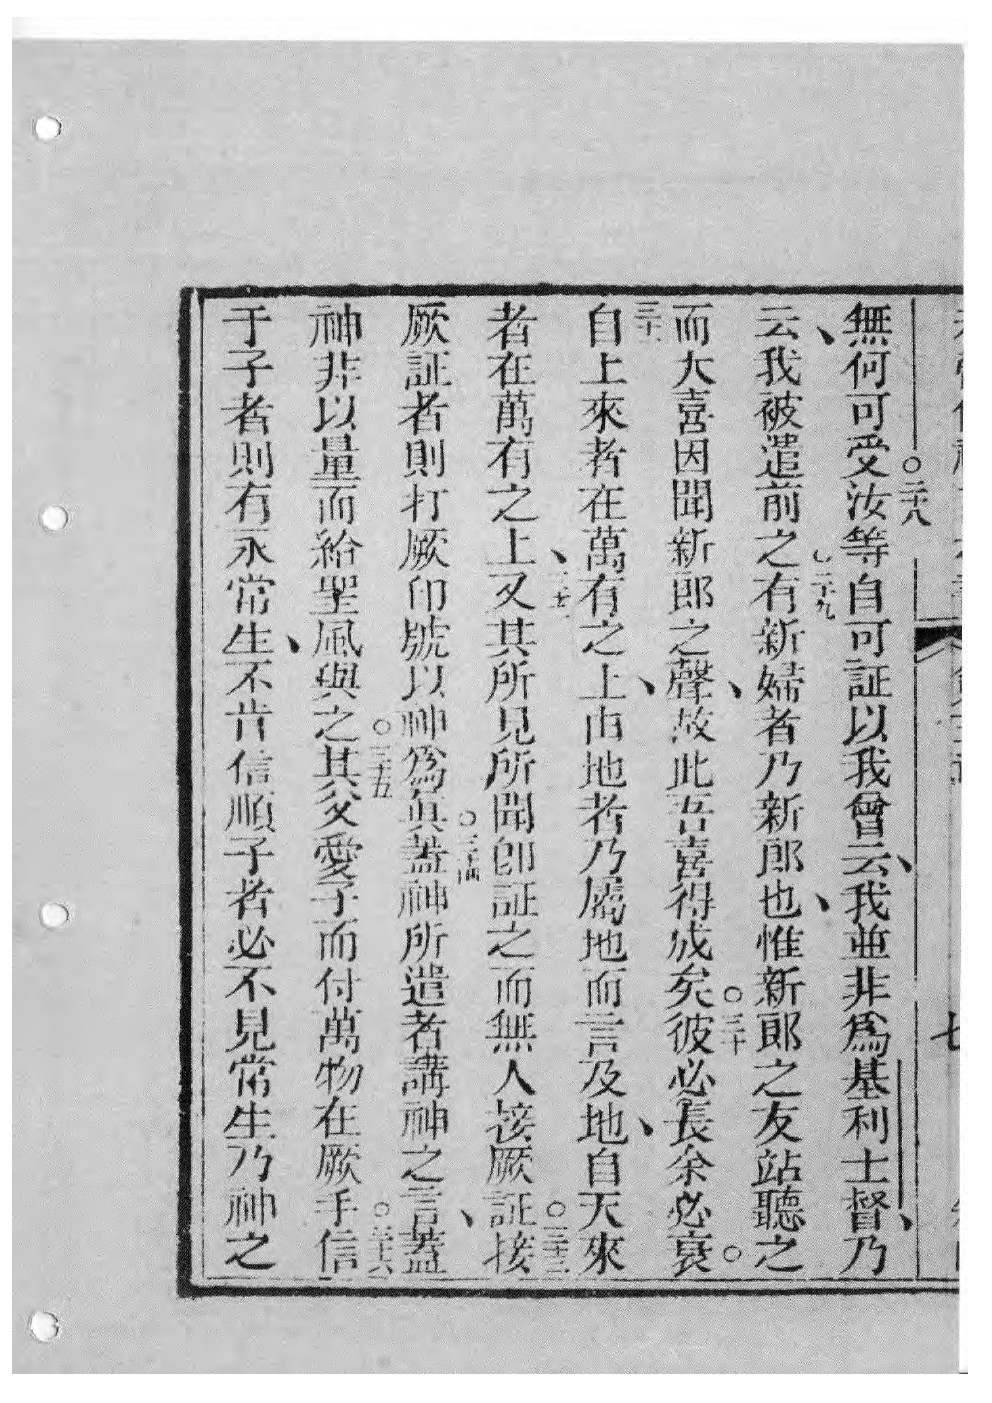 無何可受汝等自可証以我曾云我並非爲基利士督乃
○二八
云我被遣前之有新婦者乃新郎也惟新郎之友站聽之
○二十九
而大喜因聞新郎之聲故此吾喜得成矣彼必長余必衰
○三十
○三十一
自上來者在萬有之上由地者乃屬地而言及地自天來
者在萬有之上又其所見所聞卽証之而無人接厥証接
○三十三
厥証者則打厥印號以神爲眞蓋神所遣者講神之言蓋
○三十四
神非以量而給聖風與之其父愛子而付萬物在厥手信
○三十五
○三十六
于子者則有永常生不肯信順子者必不見常生乃神之
七